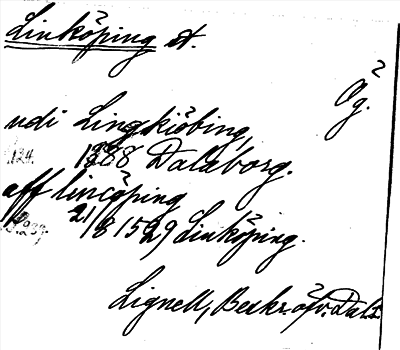 Linköping st.
Ög.
udi Lingkiöbing,
s.124. 1388 Dalaborg.
aff lincöping
21/8 1529 Linköping.
Lignell, Beskr. öfv. Dal.